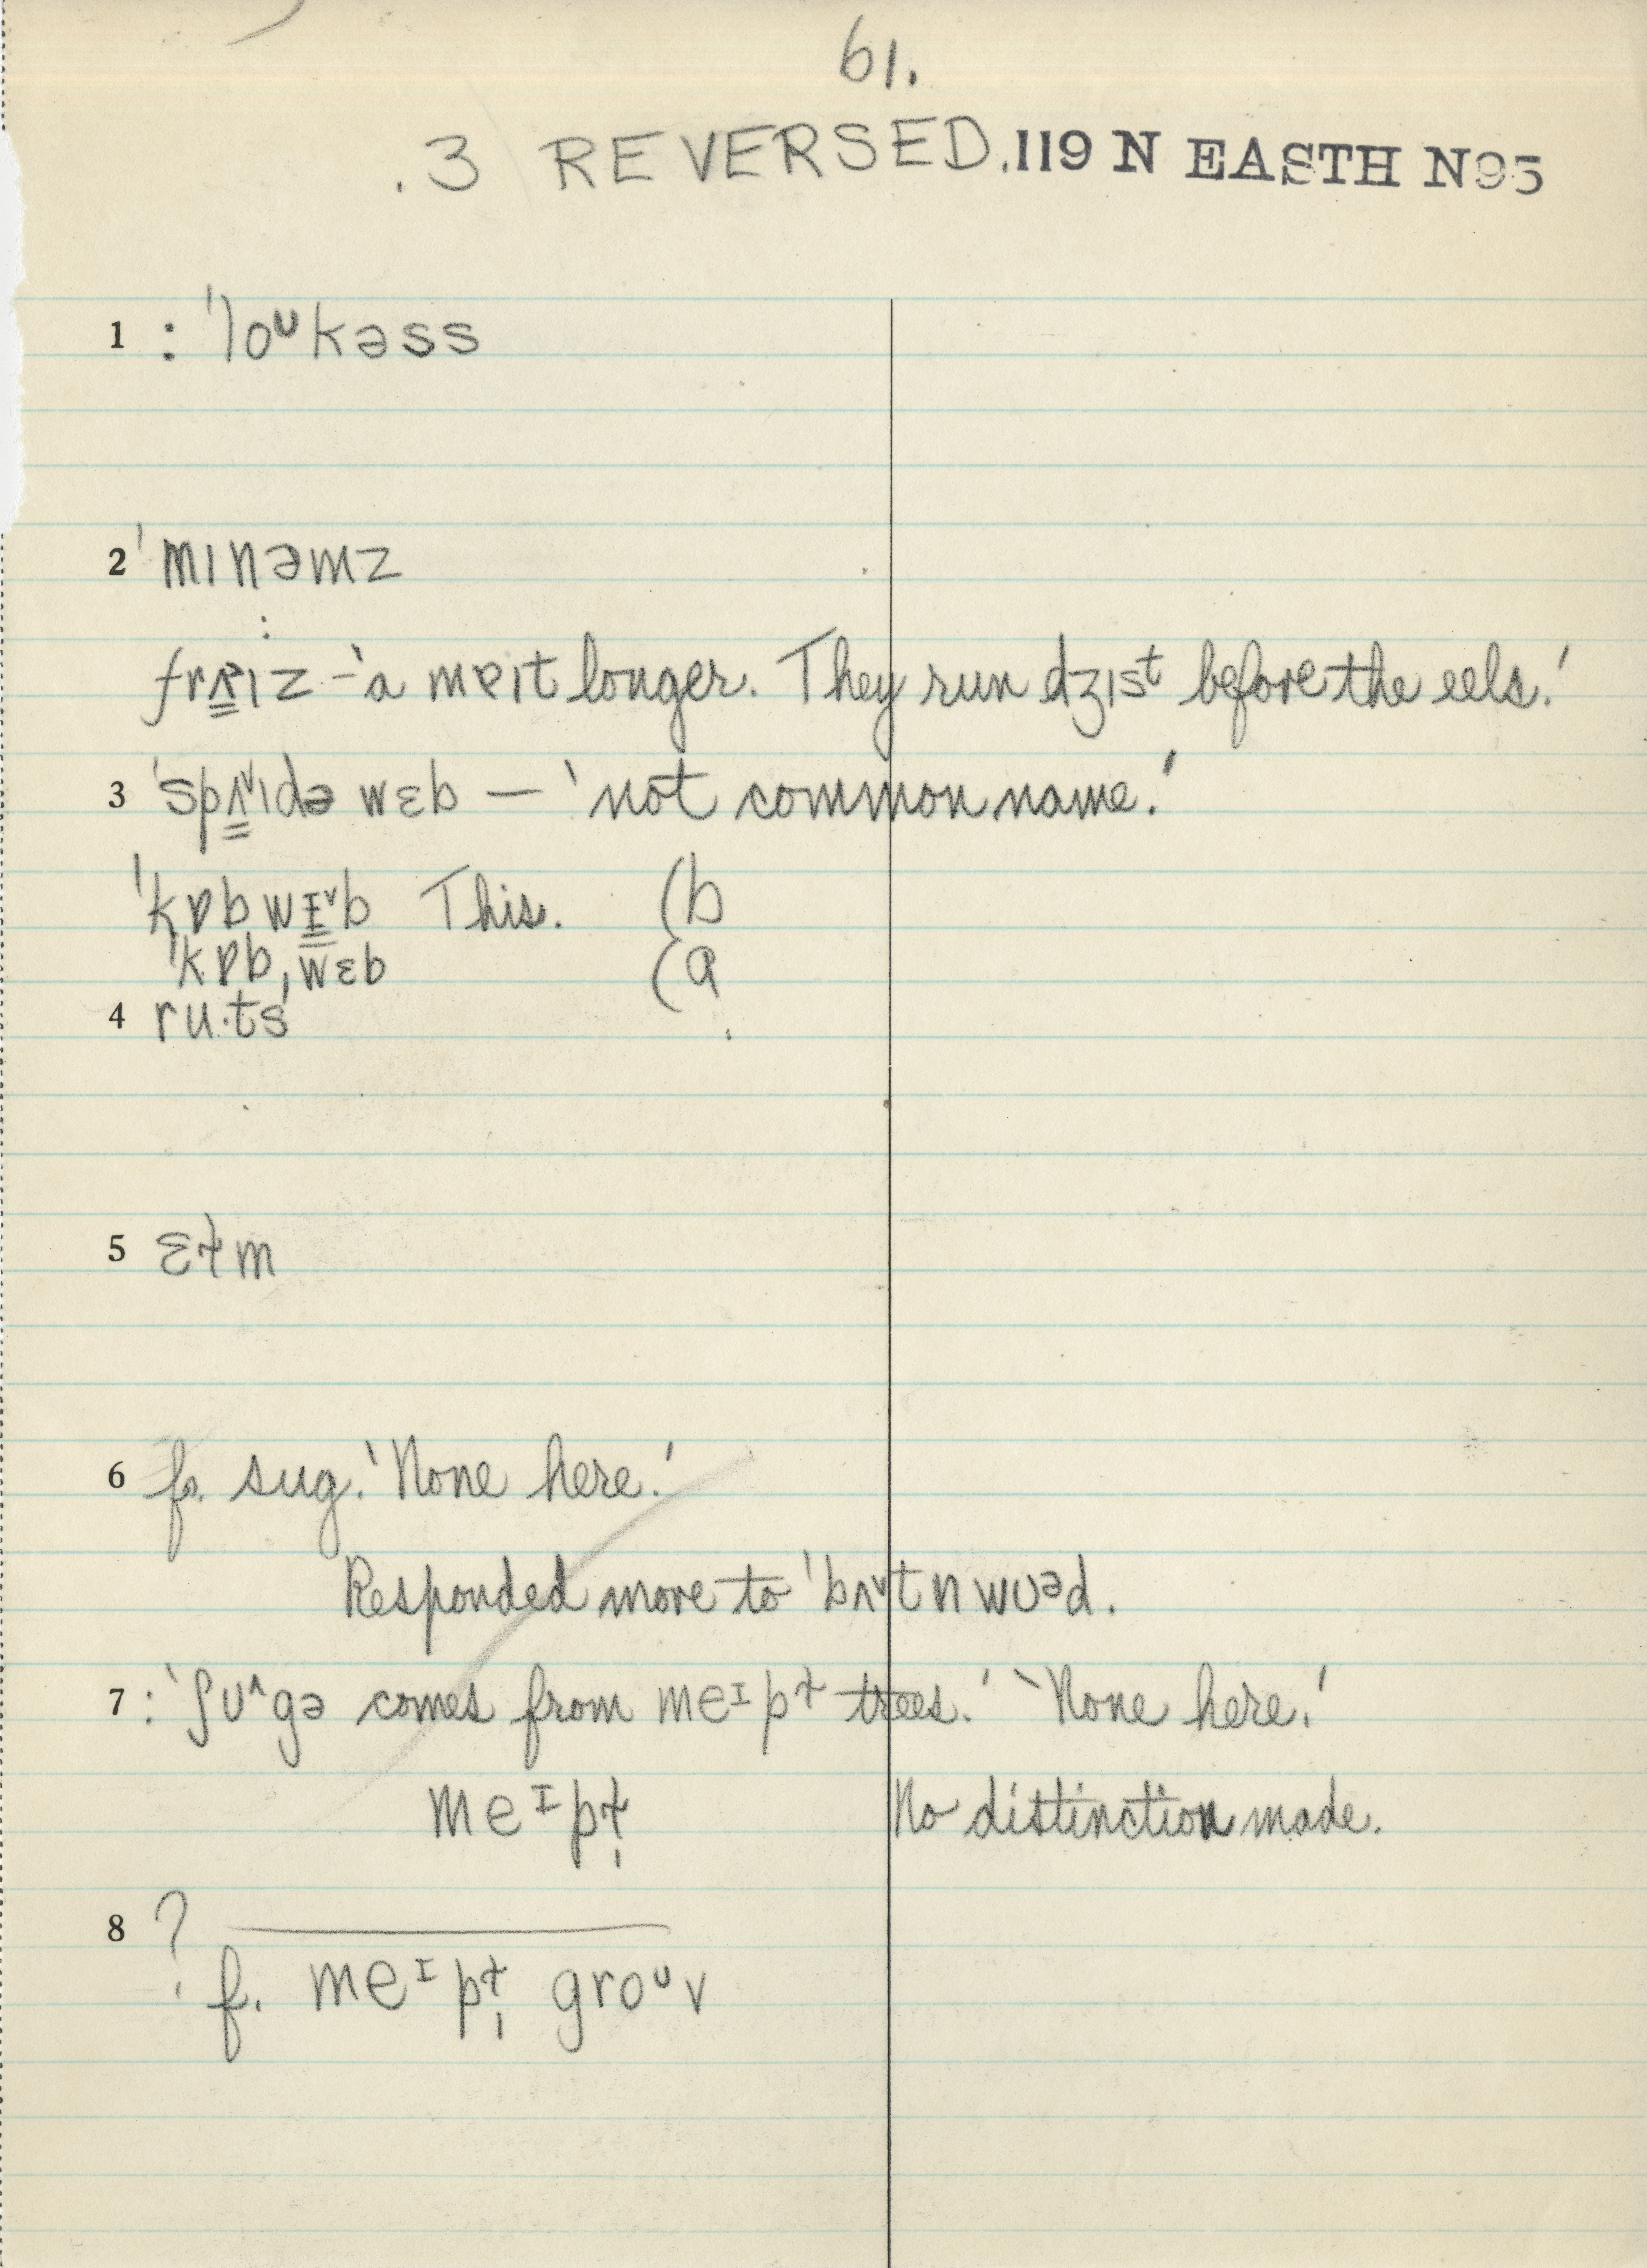 61.
.3 REVERSED. 119 N EASTH N95
1 : ˈloᶷkəss
2 ˈmɪnəmz
: frɐ̳ɪz – 'a mɐɪt longer. They run dʒɪsᵗ before the eels.'
3 ˈspʌ̳ˇɪdə wɛb — 'not common name.'
ˈkɒb wɪ̳ˇb This. (b
ˈkɒbˌwɛb (a
4 ru·ts
5 ɛɫm
6 f. sug. 'None here.'
Responded more to ˈbʌˇtnwʊᵊd.
7 : 'ʃʊ^gə comes from meᶦpɫ trees.' 'None here.'
meᶦpɫ̩ No distinction made.
8 ?
: f. meᶦpɫ̩ groᶷv